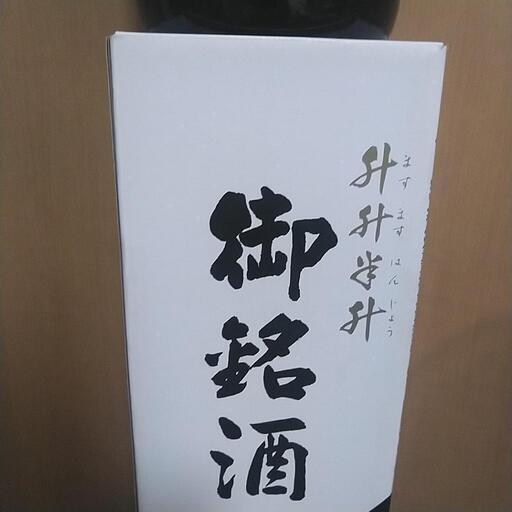 升升半升
ます ます はん じょう
御銘酒